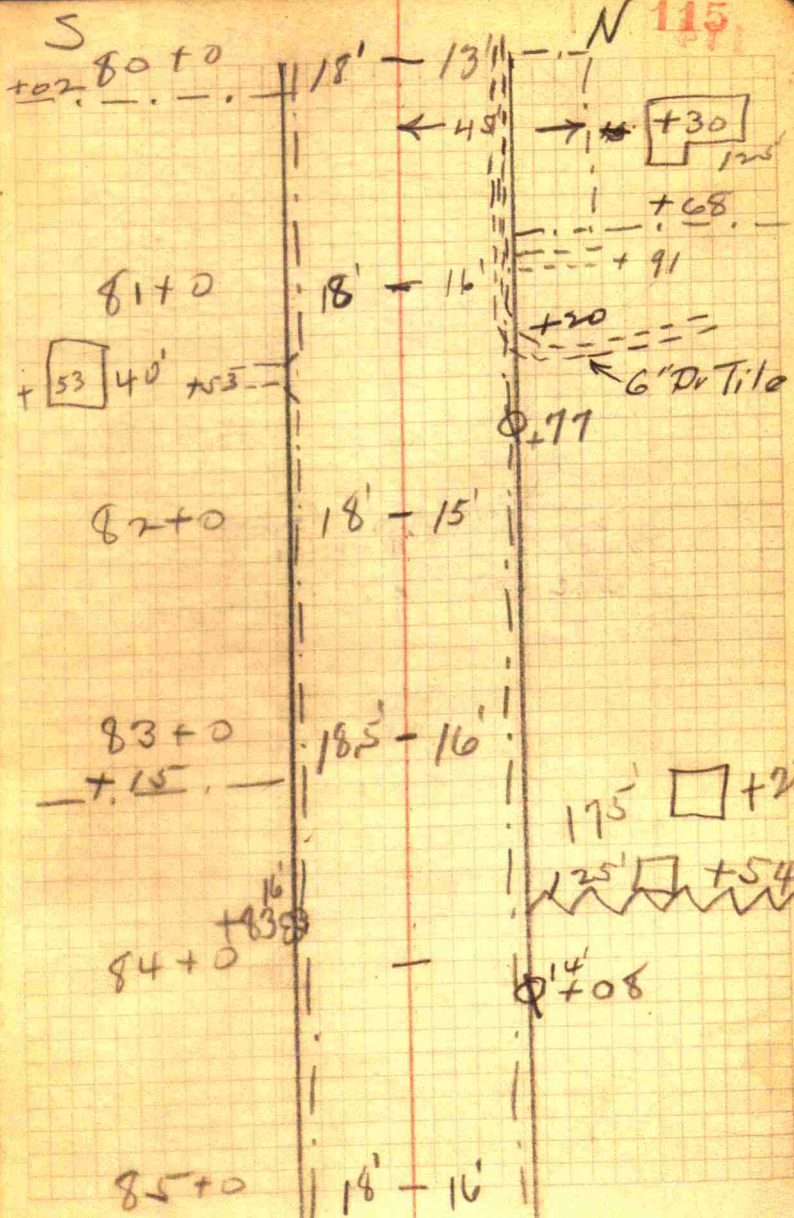 S N 115
80+0 18' — 13'
+02
← 45' → +30
125'
+68
+91
81+0 18' — 16'
+20
+ 53 40' +53
6" Dr Tile
+77
82+0 18' — 15'
83+0 18.5' — 16'
+15
175' +2
125' +54
16'
+83
84+0 —
14'
+08
85+0 18' — 16'